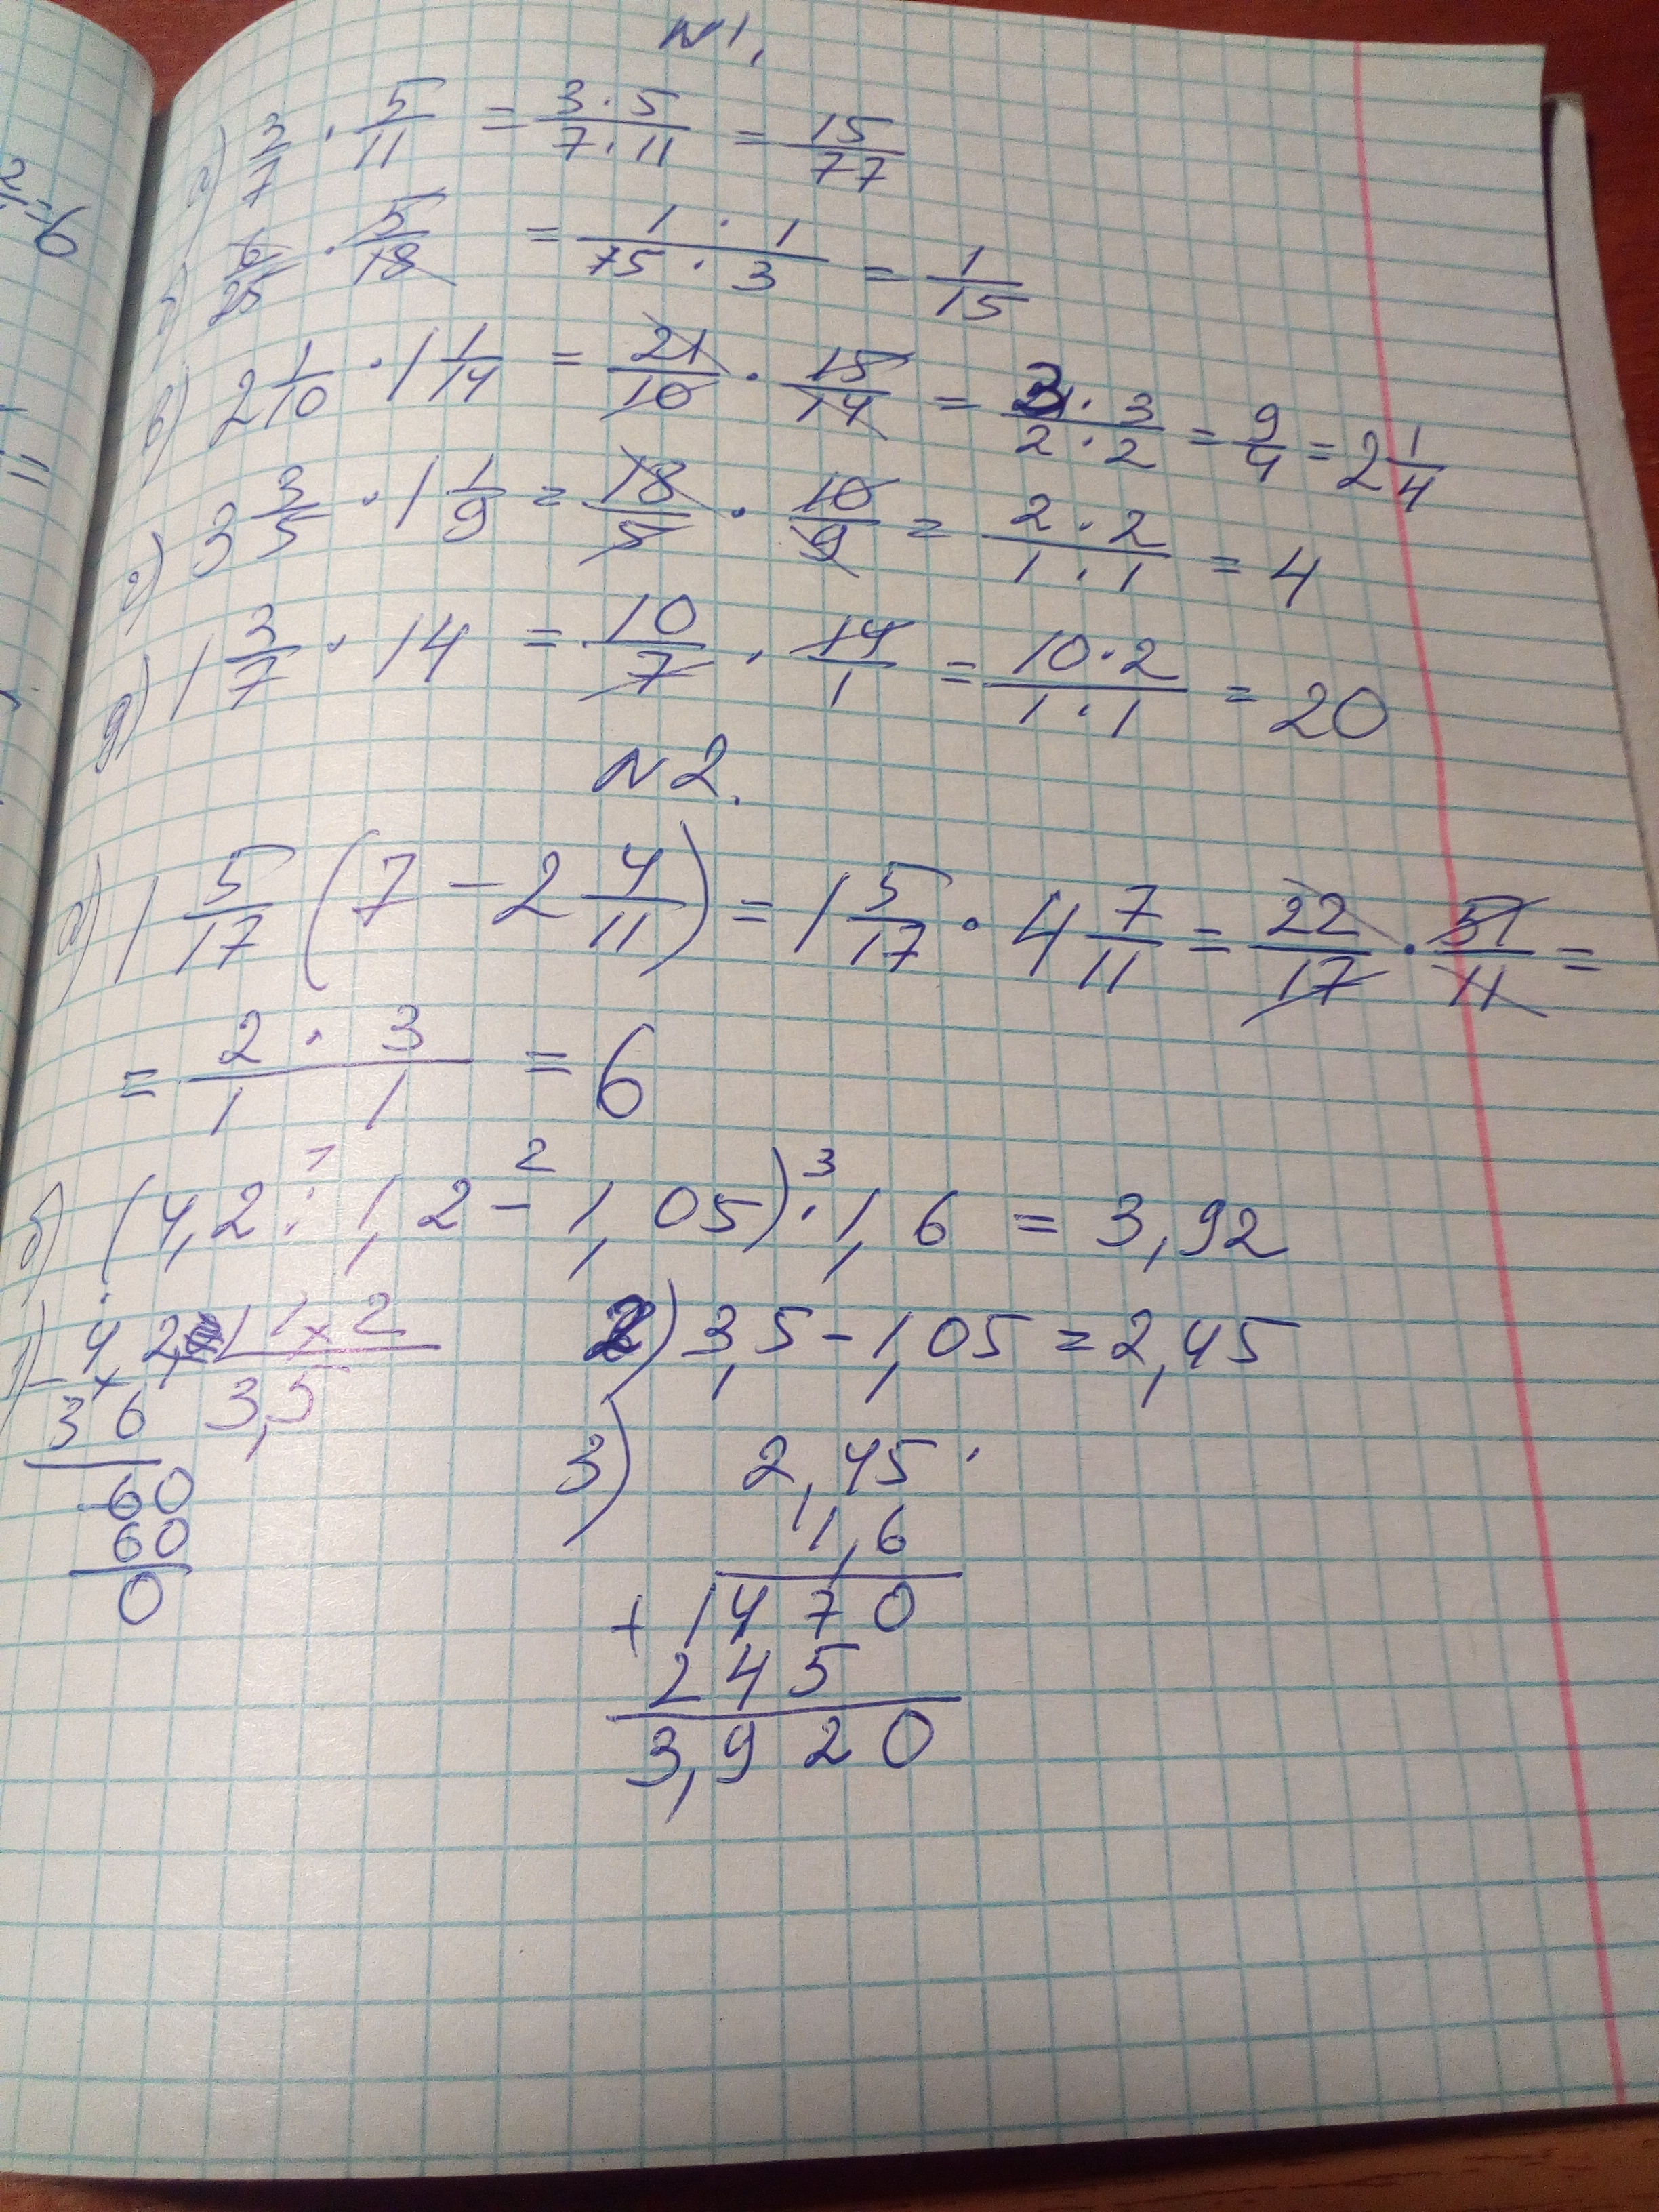 N1.
а) 3/7 · 5/11 = 3·5/7·11 = 15/77
б) 6/25 · 5/18 = 1·1/75·3 = 1/15
в) 2 1/10 · 1 1/14 = 21/10 · 15/14 = 3·3/2·2 = 9/4 = 2 1/4
г) 3 3/5 · 1 1/9 = 18/5 · 10/9 = 2·2/1·1 = 4
д) 1 3/7 · 14 = 10/7 · 14/1 = 10·2/1·1 = 20
N2.
а) 1 5/17 (7 - 2 4/11) = 1 5/17 · 4 7/11 = 22/17 · 51/11 =
= 2 · 3/1 1 = 6
1 2 3
б) (4,2 : 1,2 - 1,05) · 1,6 = 3,92
1) 4,2 1,2
36 3,5
60
60
0
2) 3,5 - 1,05 = 2,45
3) 2,45 ·
1,6
+ 1470
245
3,920
2/1 = 6
=